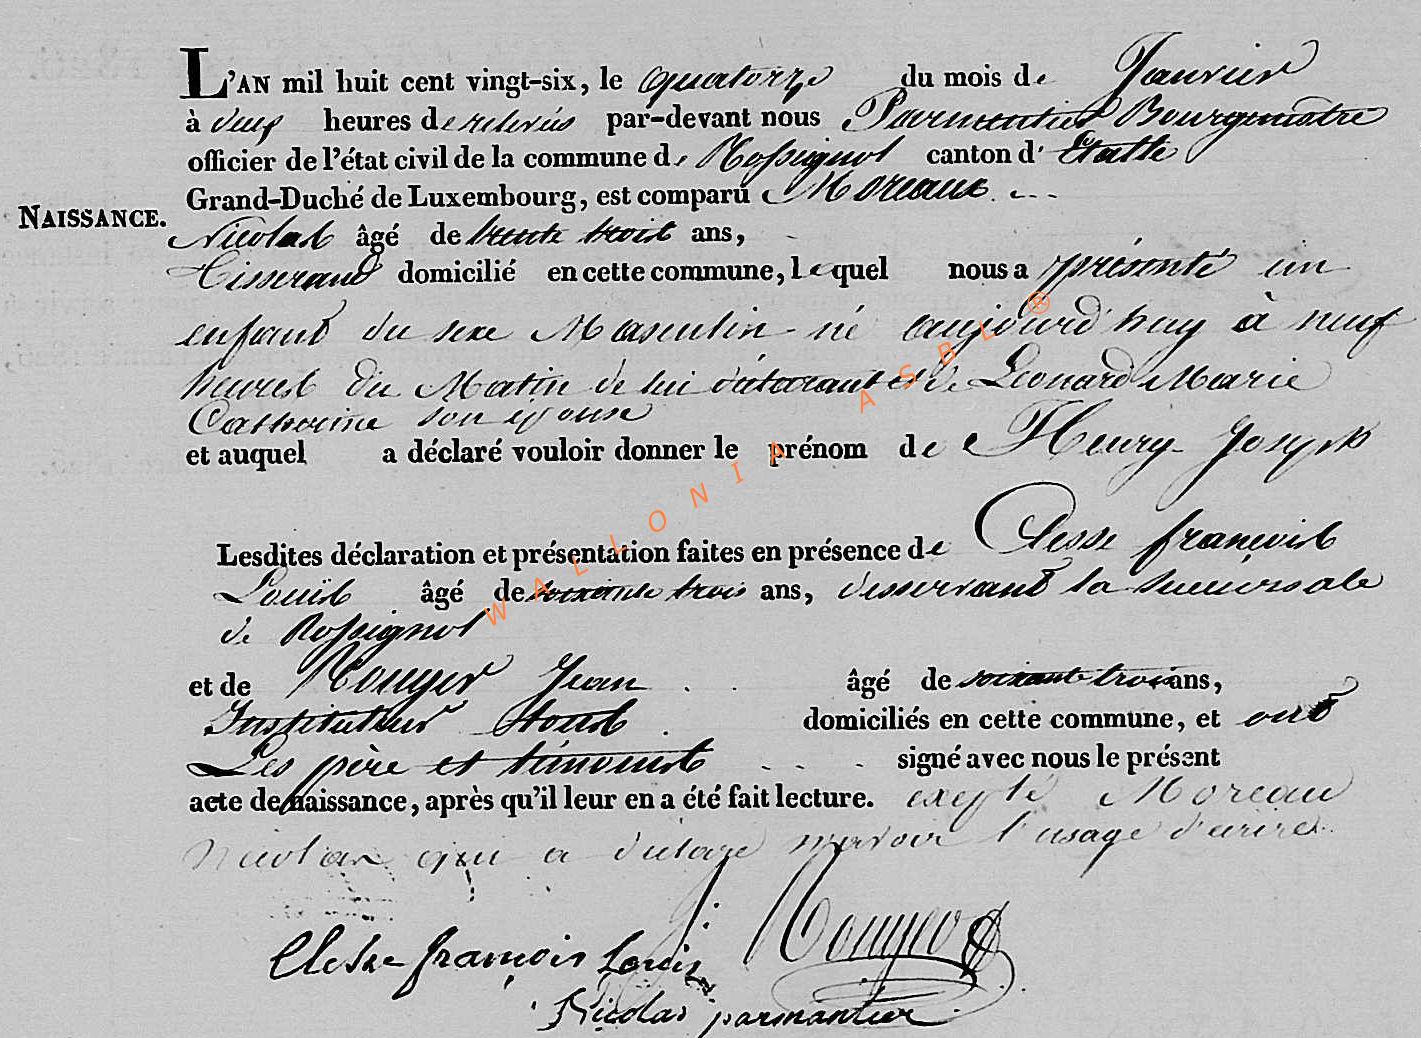 L'AN mil huit cent vingt-six, le quatorze du mois de Janvier
à deux heures de relevée par-devant nous Parmentier Bourgmestre
officier de l'état civil de la commune de Rossignol canton d' Etalle
Grand-Duché de Luxembourg, est comparu Moreaux
NAISSANCE.
Nicolas âgé de trente trois ans,
Tisserand domicilié en cette commune, lequel nous a présenté un
enfant du sexe Masculin né aujourd'huy à neuf
heures du Matin de lui déclarant et de Léonard Marie
Catherine son épouse
et auquel a déclaré vouloir donner le prénom de Henry Joseph
Lesdites déclaration et présentation faites en présence de Clesse françois
Louis âgé de soixante trois ans, desservant la succursale
de Rossignol
et de Rouyer Jean âgé de soixante trois ans,
Instituteur tous domiciliés en cette commune, et ont
Les père et témoins signé avec nous le présent
acte de naissance, après qu'il leur en a été fait lecture. exepté Moreau
Nicolas qui a déclaré n'avoir l'usage d'écrire
J: Rouyer
Clesse françois Louis
Nicolas parmantier
WALLONIA ASBL ®